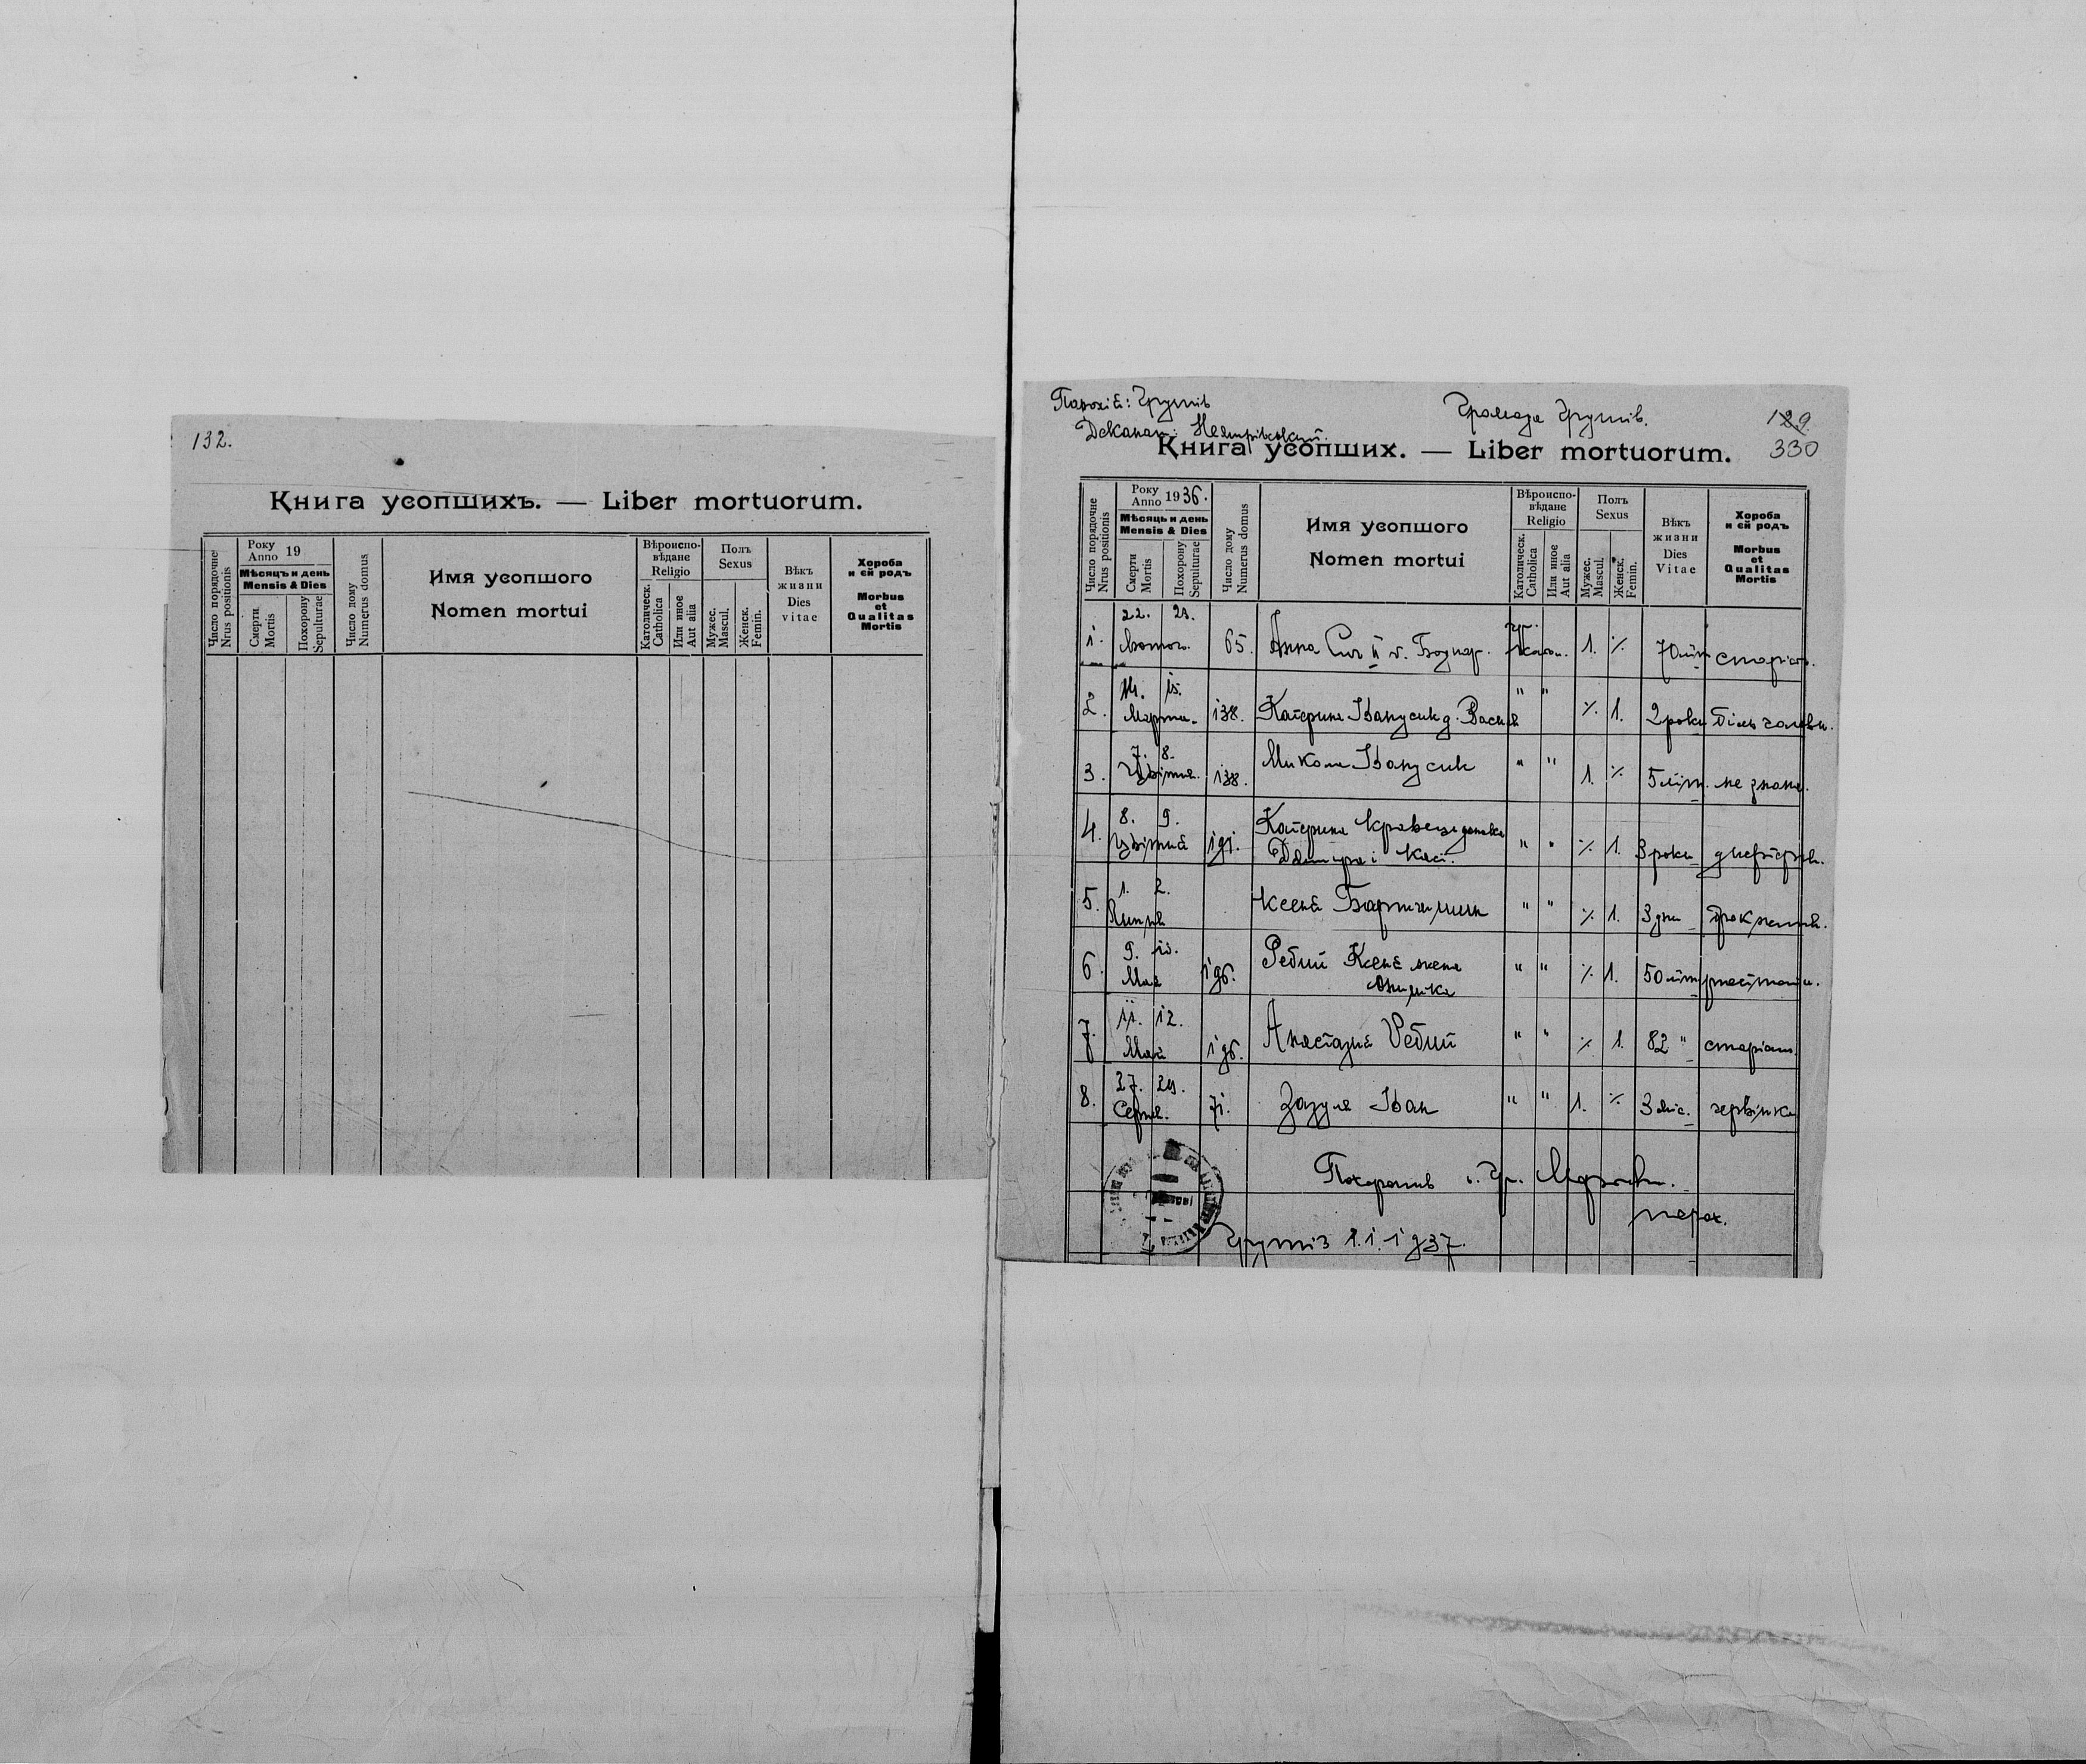 132.
Книга усопшихъ. — Liber mortuorum.
Число порядочне
Nrus positionis
Року
Anno 19
Мѣсяцъ и день
Mensis & Dies
Смерти
Mortis
Похорону
Sepulturae
Число дому
Numerus domus
Имя усопшого
Nomen mortui
Вѣроиспо-
вѣдане
Religio
Католическ.
Catholica
Или иное
Aut alia
Полъ
Sexus
Мужес.
Mascul.
Женск.
Femin.
Вѣкъ
жизни
Dies
vitae
Хороба
и єй родъ
Morbus
et
Qualitas
Mortis
Парохія: Грушів
Громада Грушів.
129
Деканат:
330
Книга усопших. — Liber mortuorum.
Число порядочне
Nrus positionis
Року
Anno 1936.
Мѣсяць и день
Mensis & Dies
Смерти
Mortis
Похорону
Sepulturae
Число дому
Numerus domus
Имя усопшого
Nomen mortui
Вѣроиспо-
вѣдане
Religio
Католическ.
Catholica
Или иное
Aut alia
Полъ
Sexus
Мужес.
Mascul.
Женск.
Femin.
Вѣкъ
жизни
Dies
Vitae
Хороба
и єй родъ
Morbus
et
Qualitas
Mortis
22.
1. Лютого. 65. Анна Боднар. 1. % 70 літ старість.
14. 15.
2. Марта. 138. Катерина Іванусик д. Василя " " % 1. 2 роки біль голови.
7. 8.
3. Цьвітня. 138. Микола Іванусик " " 1. % 5 літ. не знана.
8. 9.
4. Цьвітня 191. Катерина Кравець донька
Дмитра і Касі. " " % 1. 3 роки
1. 2.
5. Ксеня " " % 1. 3 дни
9. 10.
6. Мая 196. Ребій Ксеня жена " " % 1. 50 літ
11. 12.
7. Мая 196. Анастазия Ребій " " % 1. 82 " старість.
27. 29.
8. Серпня. 71. Зазуля Іван " " 1. % 3 міс. червінка
Похоронив о. Гр.
парох.
Грушів 1.1.1937.